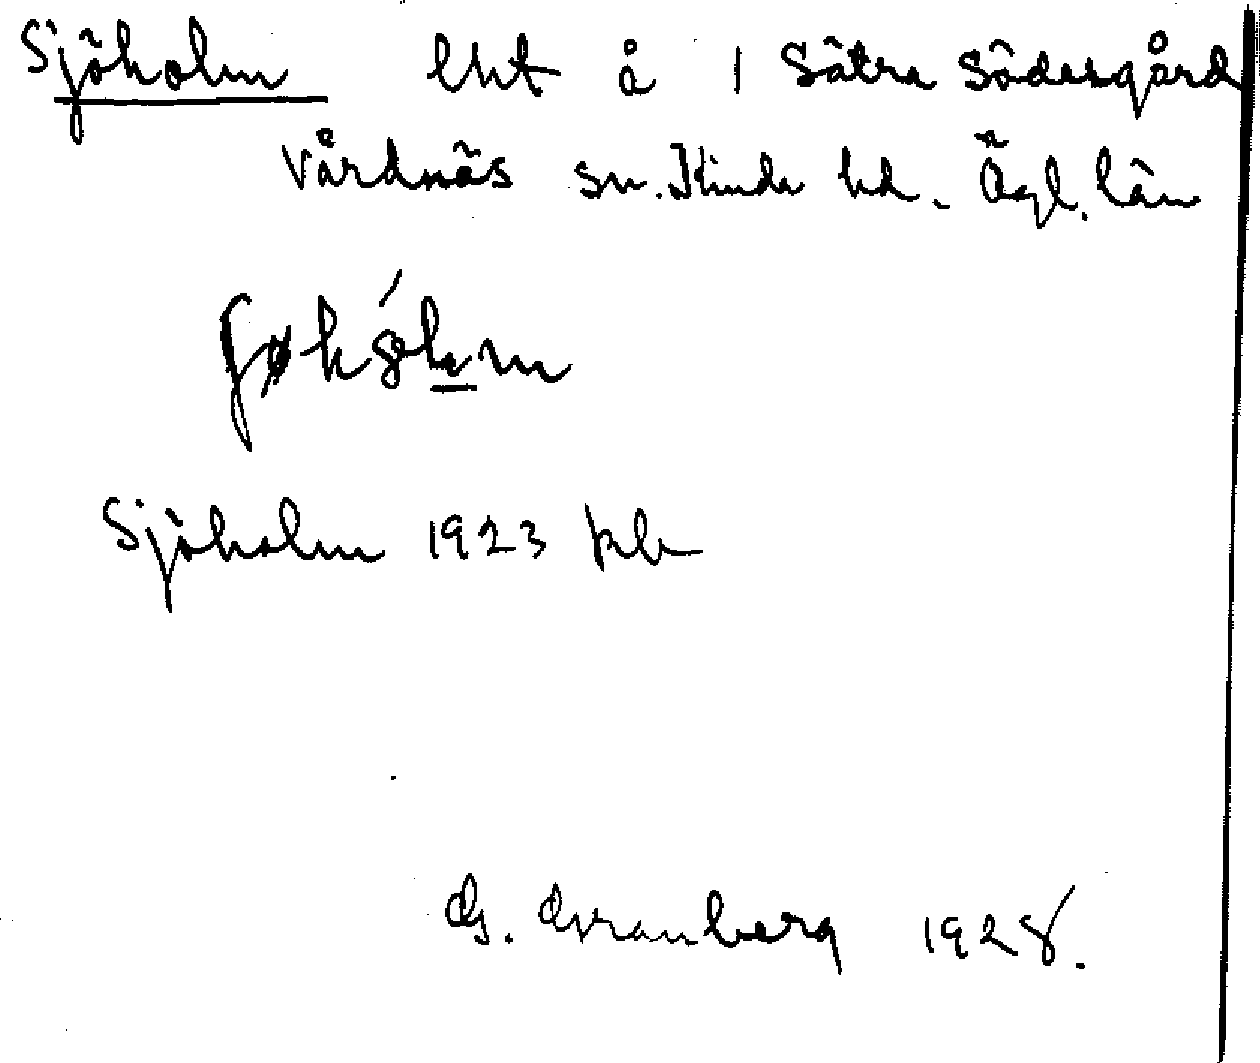 Sjöholm lht å 1 Sätra Södergård
Vårdnäs sn. Kinda hd. Ögl. län
Sjöholm 1923 kb
G. Granberg 1928.